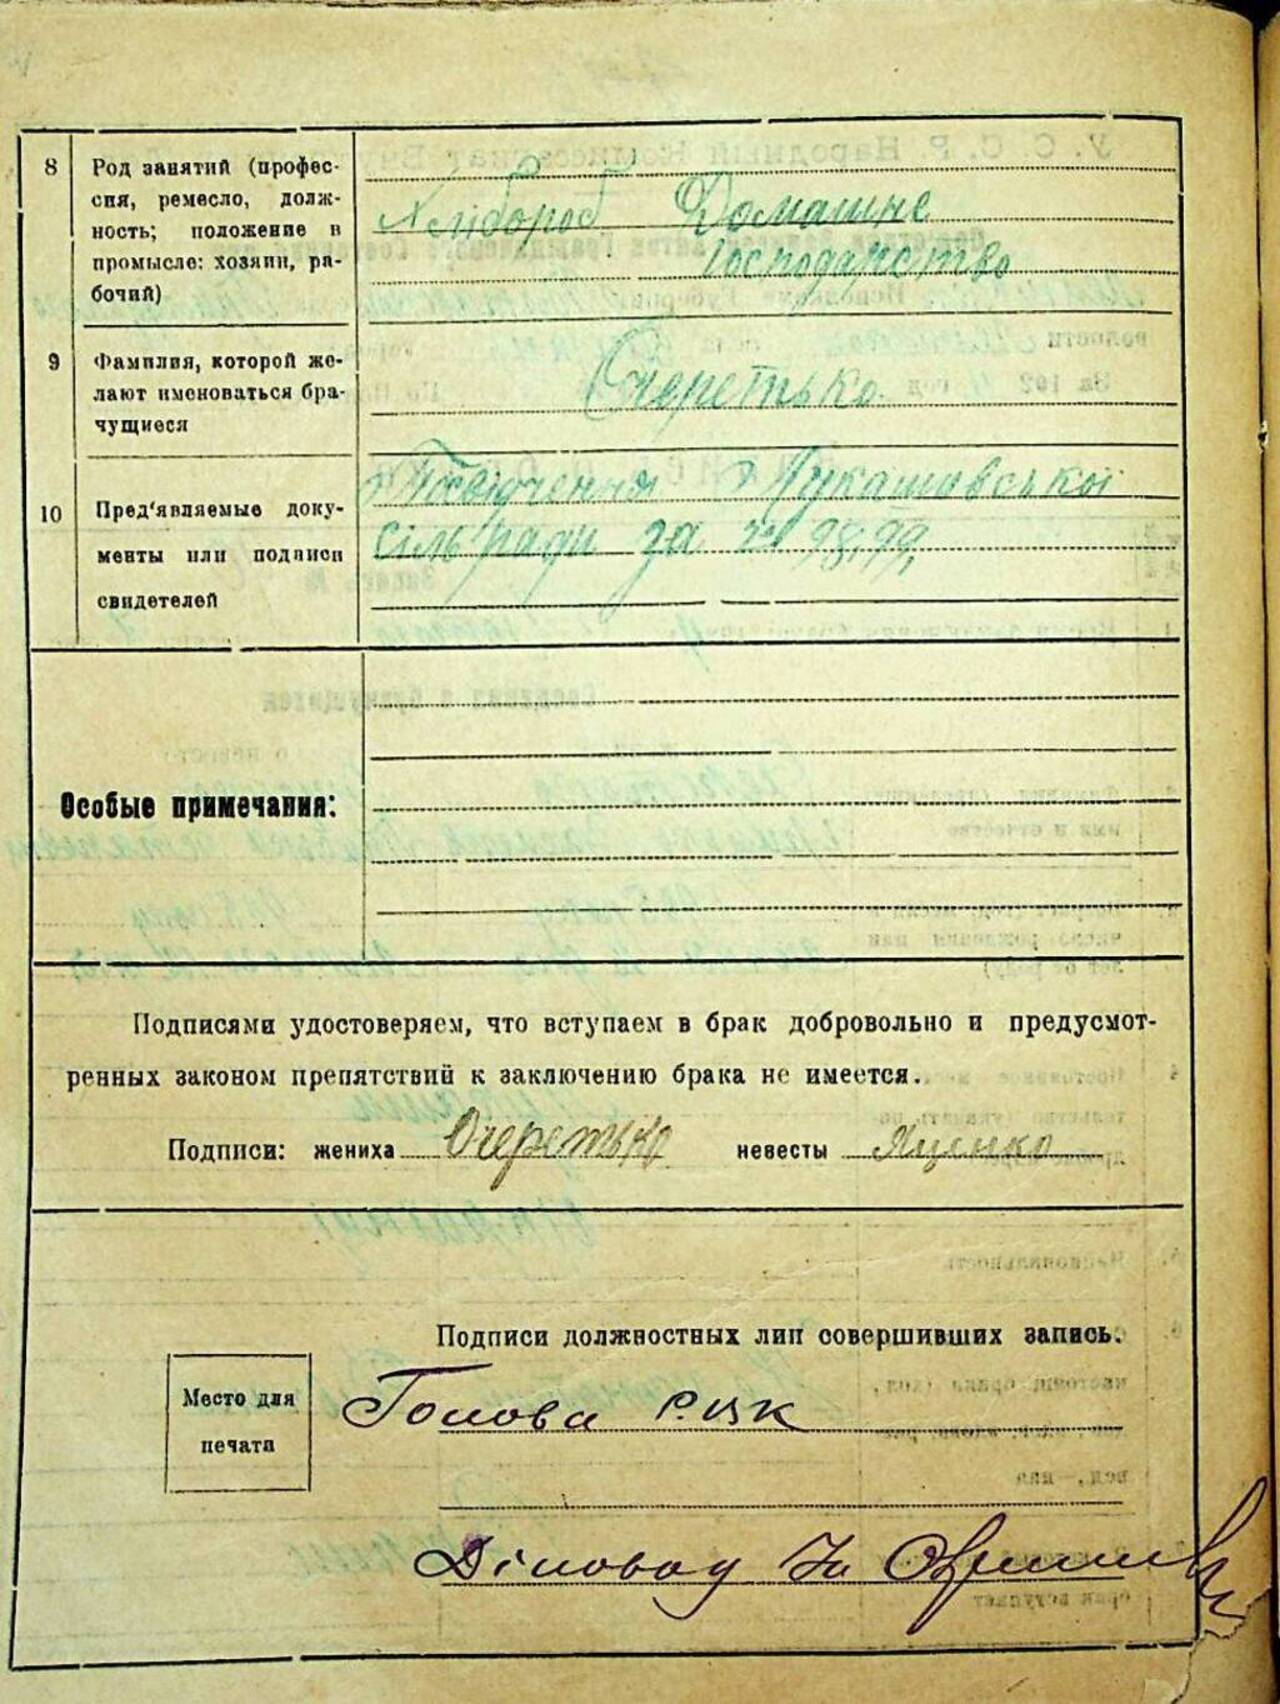 8 Род занятий (профес-
сия, ремесло, долж-
ность; положение в
промысле: хозяин, ра-
бочий)
Хлібороб Домашнє
господарство
9 Фамилия, которой же-
лают именоваться бра-
чущиеся
Очеретько
10 Пред'являемые доку-
менты или подписи
свидетелей
Посвідчення Лукашовської
сільради за № 98, 99,
Особые примечания:
Подписями удостоверяем, что вступаем в брак добровольно и предусмот-
ренных законом препятствий к заключению брака не имеется.
Подписи: жениха Очеретько невесты Яценко
Подписи должностных лиц совершивших запись.
Место для
печати
Голова РВК
Діловод